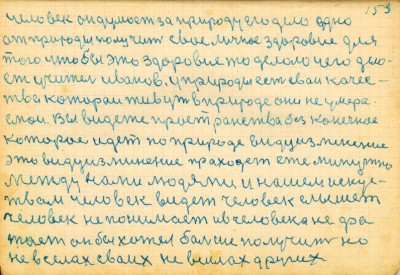 153
человек он думает за природу его дело одно
от природы получит свое личное здоровие для
того чтобы это здоровие то делало чего дяо-
ет учител иванов. у природы ест сваи качес-
тва которая живут в природе они не умера-
емои. Вы видете пространства без конечное
которое идет по природе видуизминение
это видуизминение праходет ежеминутно
между нами людями и нашем искус-
твам человек видет человек слышет
человек не понимает и в человека не фа-
тает он бы хотел болше получит но
не в силах сваих не в силах других